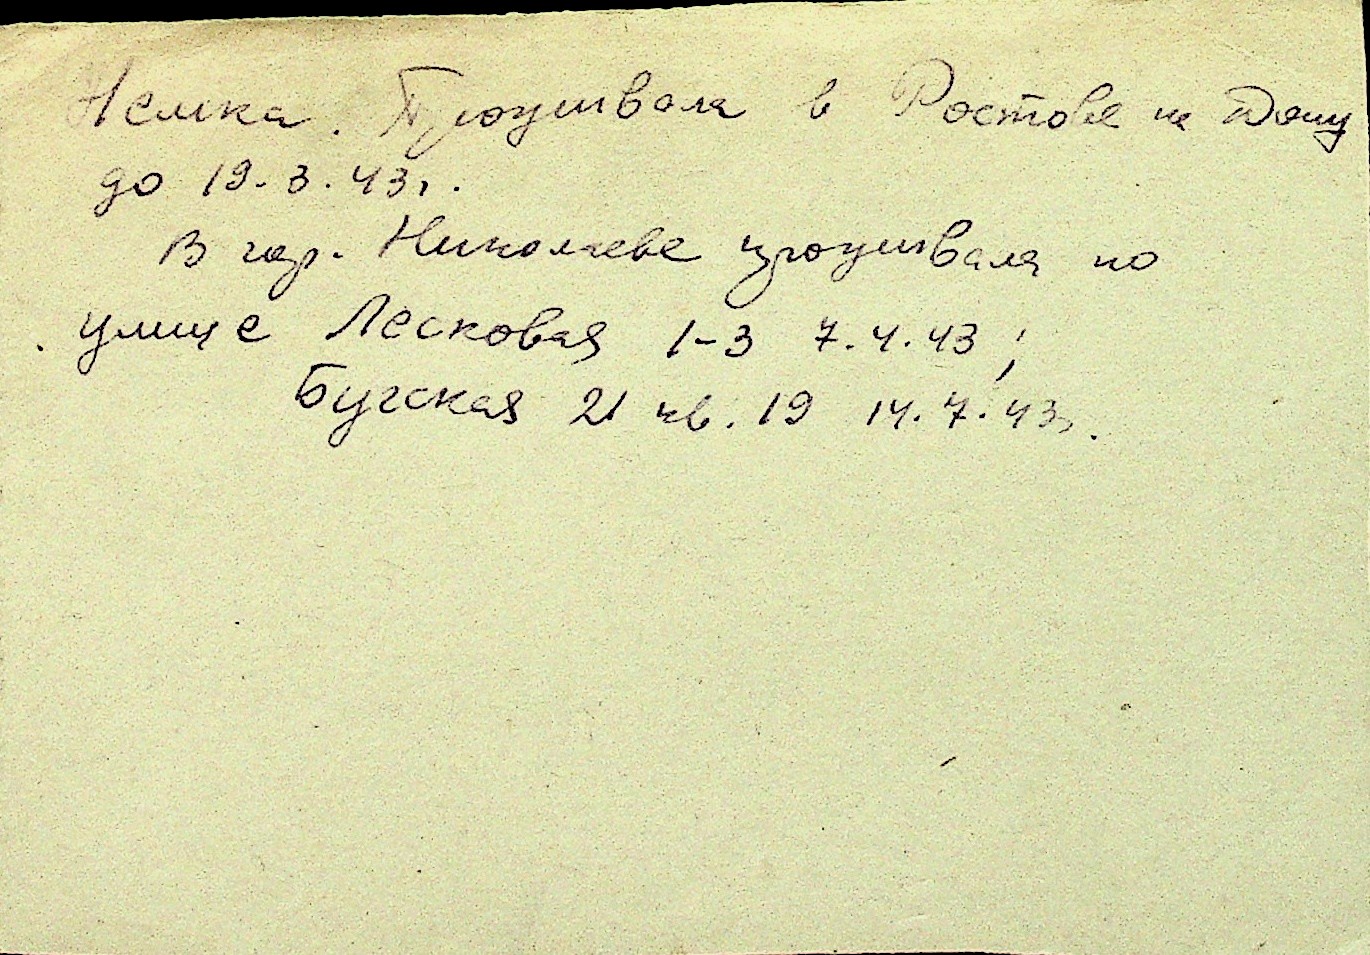 Немка. Проживала в Ростове на Дону
до 19.3.43г.
В гор. Николаеве проживала по
улице Лесковая 1-3 7.4.43;
Бугская 21 кв. 19 14.7.43г.